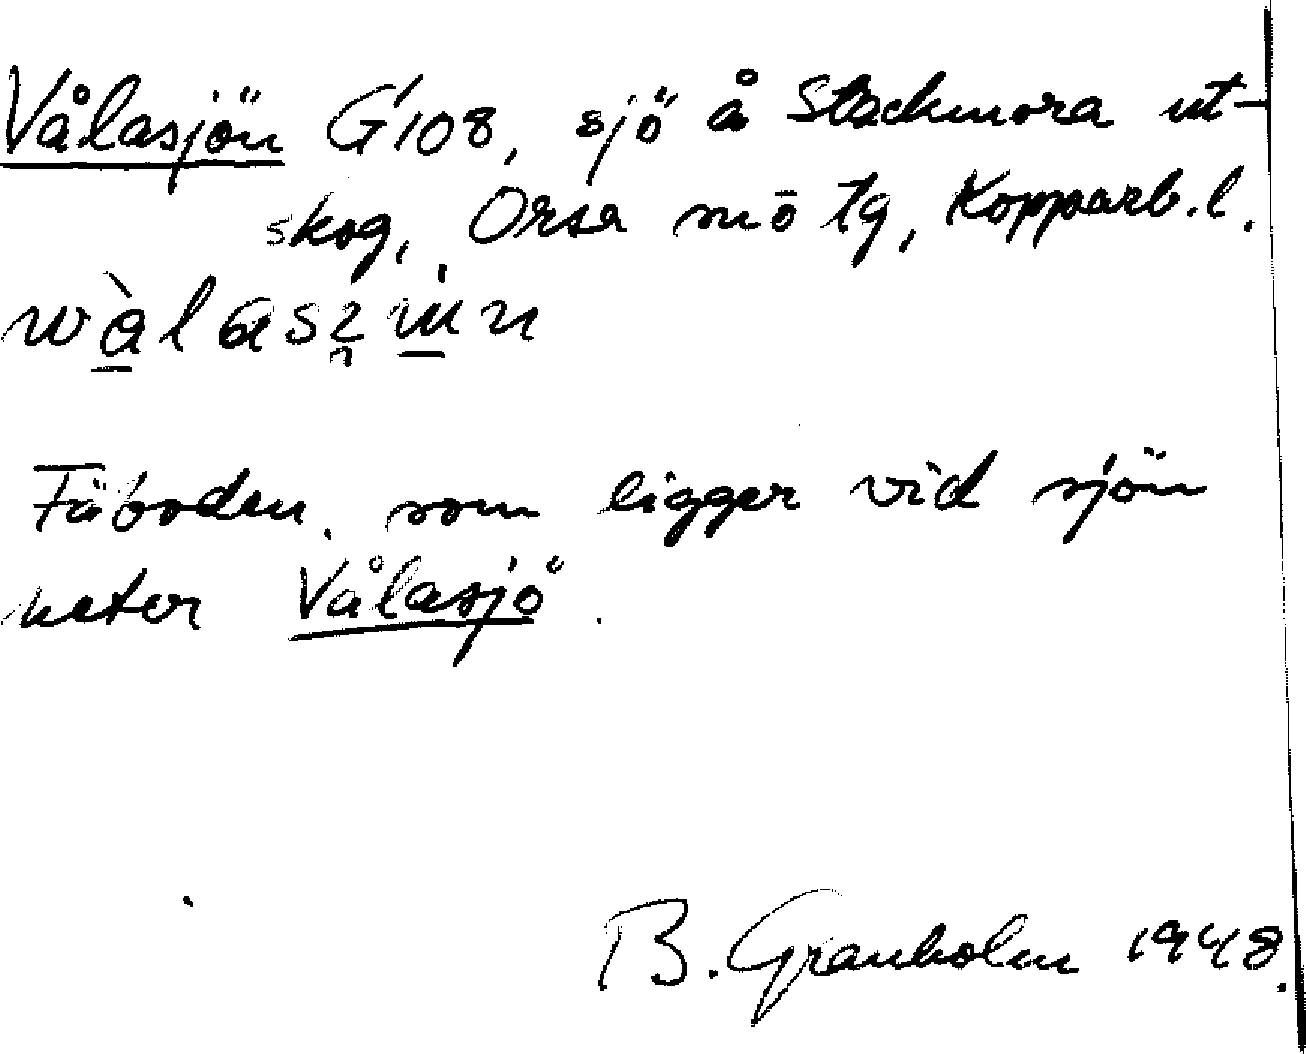 Vålasjön G'108, sjö å Stackmora ut-
skog, Orsa sn ö tg, Kopparb. l.
Fäboden, som ligger vid sjön
heter Vålasjö.
B. Granholm 1948.